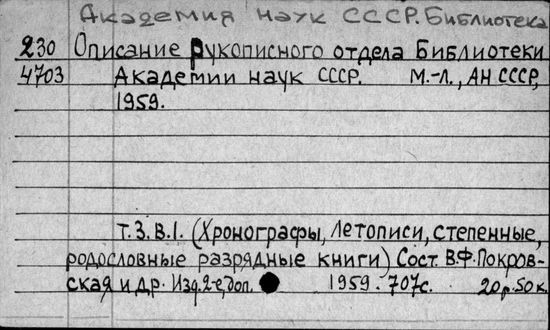 Академия наук СССР. Библиотека
230 Описание рукописного отдела Библиотеки
4703 Академии наук СССР. М.-Л., АН СССР,
1959.
Т.3. В.1. (Хронографы, летописи, степенные,
родословные разрядные книги) Сост. В.Ф. Покров-
ская и др. Изд. 2-е, доп. 1959. 707с. 20р. 50к.